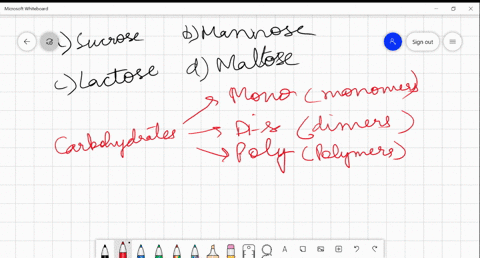 Microsoft Whiteboard
Sign out
a) Sucrose b) Mannose
c) Lactose d) Maltose
Mono (monomers)
Carbohydrates Di-s (dimers)
Poly (Polymers)